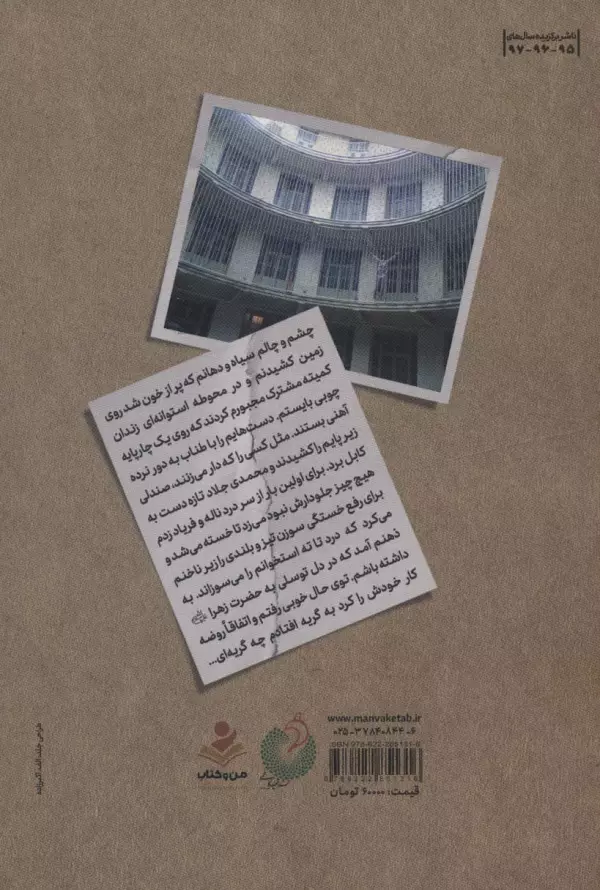 ناشر برگزیده سال‌های
۹۵-۹۶-۹۷
چشم و چالم سیاه و دهانم که پر از خون شد روی
زمین کشیدنم و در محوطه استوانه‌ای زندان
کمیته مشترک مجبورم کردند که روی یک چارپایه
چوبی بایستم. دست‌هایم را با طناب به دور نرده
آهنی بستند. مثل کسی را که دار می‌زنند، صندلی
زیر پایم را کشیدند و محمدی جلاد تازه دست به
کابل برد. برای اولین بار از سر درد ناله و فریاد زدم
هیچ چیز جلودارش نبود می‌زد تا خسته می‌شد و
برای رفع خستگی سوزن تیز و بلندی را زیر ناخنم
می‌کرد که درد تا ته استخوانم را می‌سوزاند. به
ذهنم آمد که در دل توسلی به حضرت زهرا
داشته باشم. توی حال خوبی رفتم و اتفاقاً روضه
کار خودش را کرد به گریه افتادم چه گریه‌ای...
www.manvaketab.ir
۰۲۵-۳۷۸۴۰۸۴۴-۶
من و کتاب
قیمت: ۶۰۰۰۰ تومان